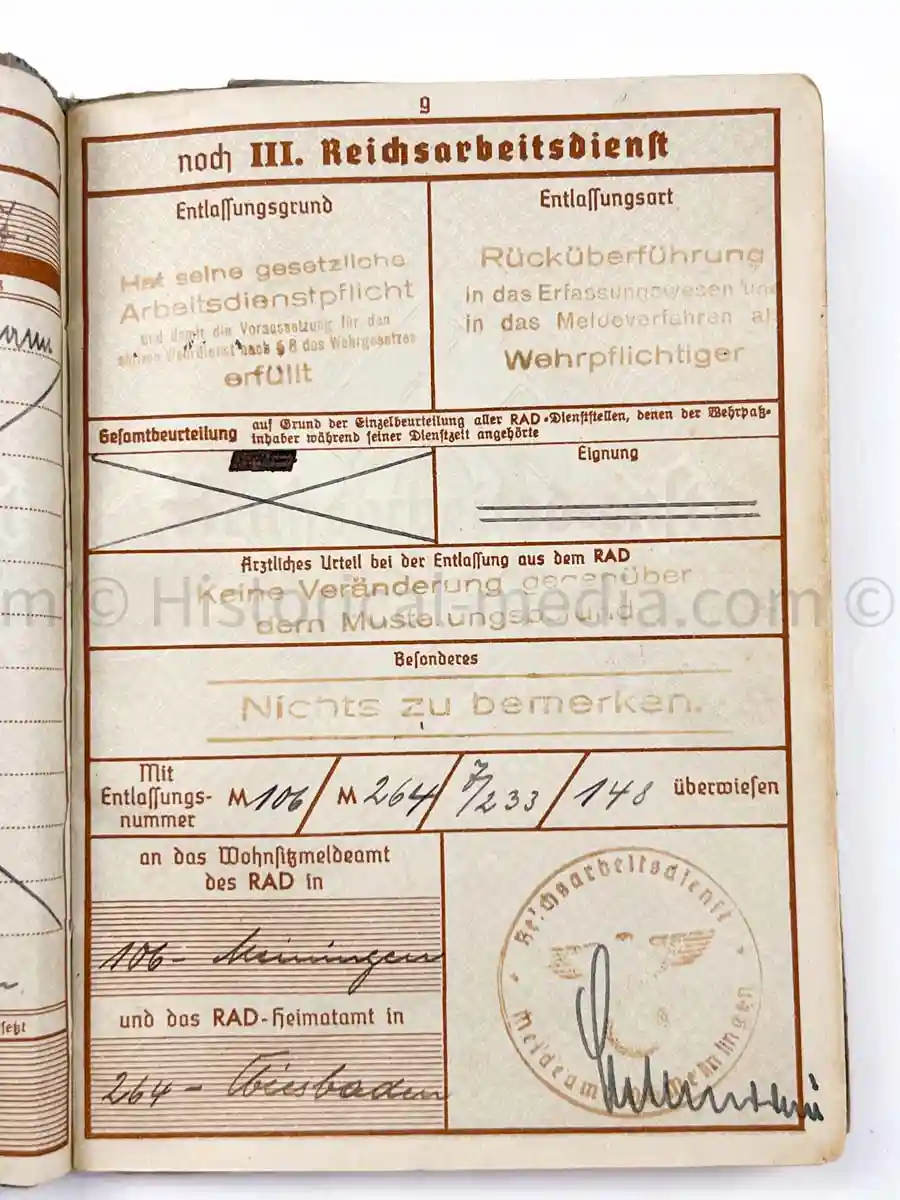 9
noch III. Reichsarbeitsdienst
Entlassungsgrund
Hat seine gesetzliche
Arbeitsdienstpflicht
und damit die Voraussetzung für den
aktiven Wehrdienst nach § 8 des Wehrgesetzes
erfüllt
Entlassungsart
Rücküberführung
in das Erfassungswesen und
in das Meldeverfahren al
Wehrpflichtiger
Gesamtbeurteilung auf Grund der Einzelbeurteilung aller RAD-Dienststellen, denen der Wehrpaß-
inhaber während seiner Dienstzeit angehörte
Eignung
Ärztliches Urteil bei der Entlassung aus dem RAD
Keine Veränderung gegenüber
dem Musterungsbefund
© Historical-media.com ©
Besonderes
Nichts zu bemerken.
Mit
Entlassungs-
nummer
M 106 / M 264 / 7/233 / 148 überwiesen
an das Wohnsitzmeldeamt
des RAD in
106 - Meiningen
und das RAD-Heimatamt in
264 - Wiesbaden
Reichsarbeitsdienst
Meldeamt Meiningen
setzt